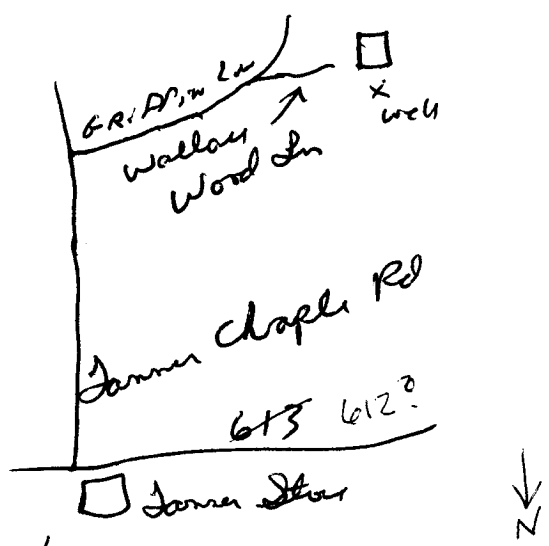 Griffin Ln
well
Wallace
Wood Ln
Tanner Chaple Rd
613 612?
Tanner Store
N